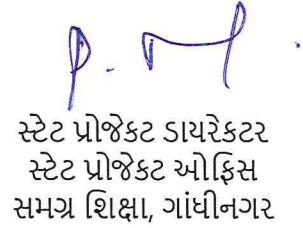 સ્ટેટ પ્રોજેકટ ડાયરેકટર
સ્ટેટ પ્રોજેકટ ઓફિસ
સમગ્ર શિક્ષા, ગાંધીનગર